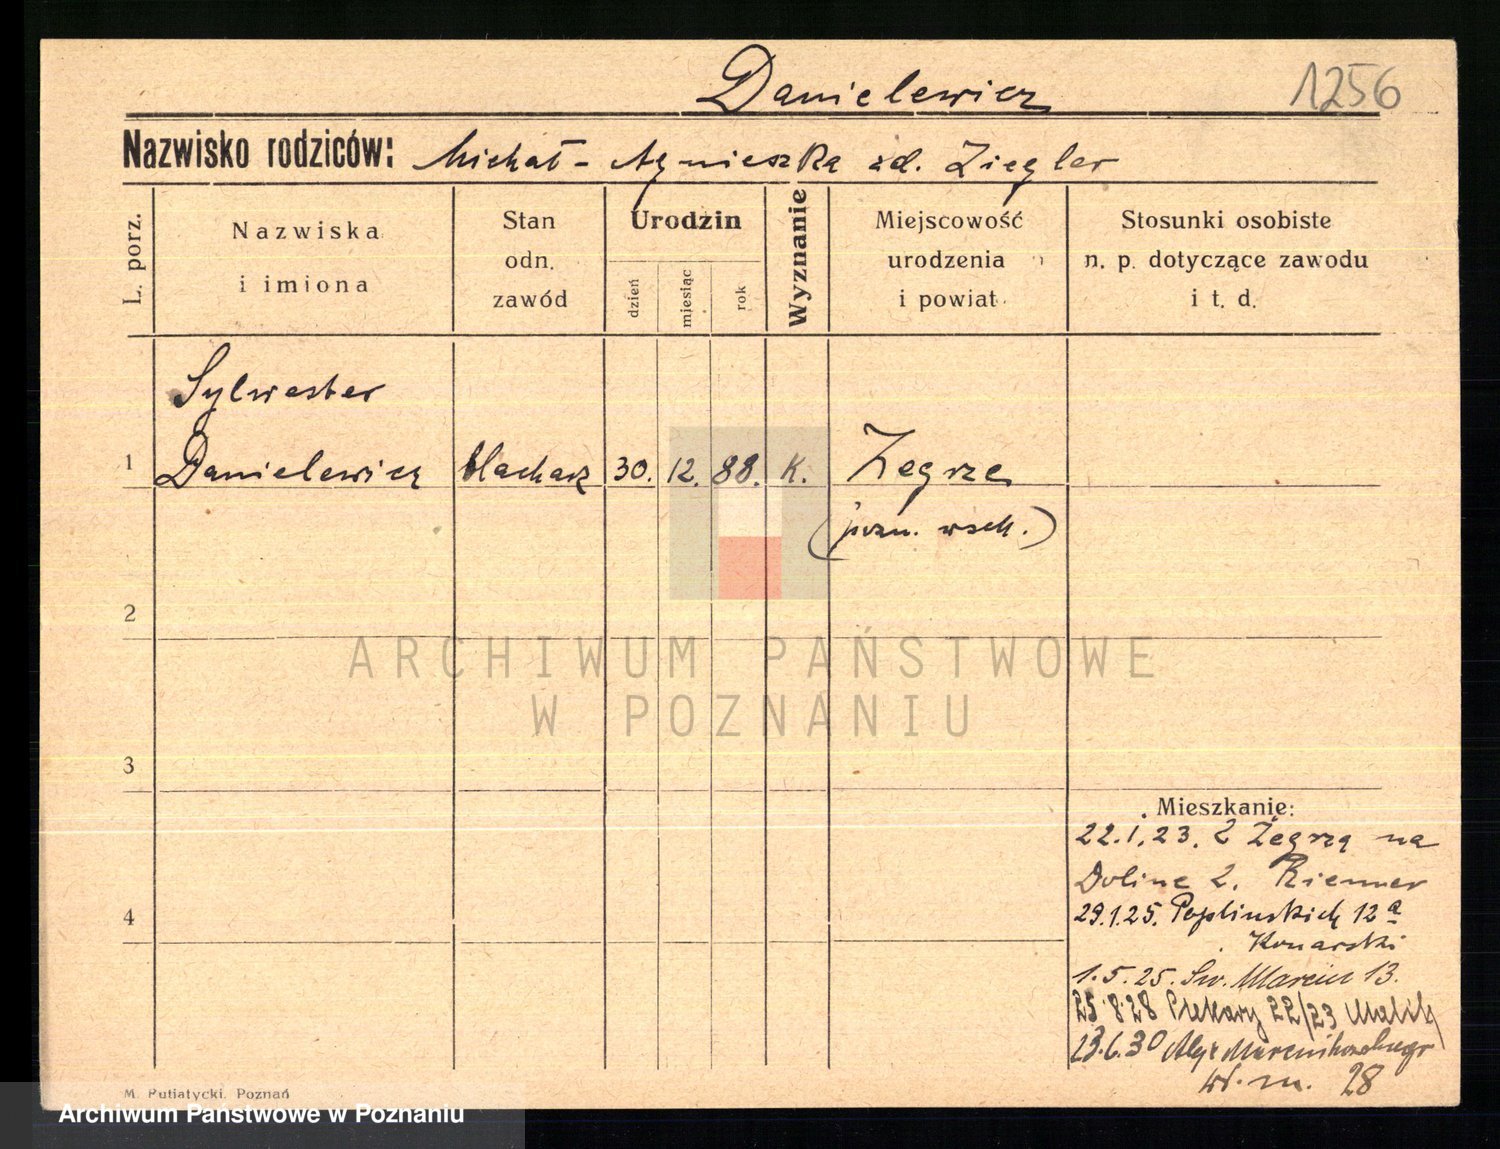 Danielewicz
1256
Nazwisko rodziców: Michał - Agnieszka zd. Ziegler
L. porz.
Nazwiska
i imiona
Stan
odn.
zawód
Urodzin
dzień
miesiąc
rok
Wyznanie
Miejscowość
urodzenia
i powiat
Stosunki osobiste
n. p. dotyczące zawodu
i t. d.
Sylwester
1 Danielewicz blacharz 30. 12. 88. K. Żegrze
(pozn. wsch.)
2
ARCHIWUM PAŃSTWOWE
W POZNANIU
3
Mieszkanie:
22.1.23. Z Żegrza na
Dolinę 2. Riemer
4
29.1.25. Poplińskich 12a
Konarski
1.5.25. Św. Marcin 13.
25.8.28 Piekary 22/23 Malik
23.6.30 Aleje Marcinkowskiego
w. m. 28
M. Putiatycki. Poznań
Archiwum Państwowe w Poznaniu